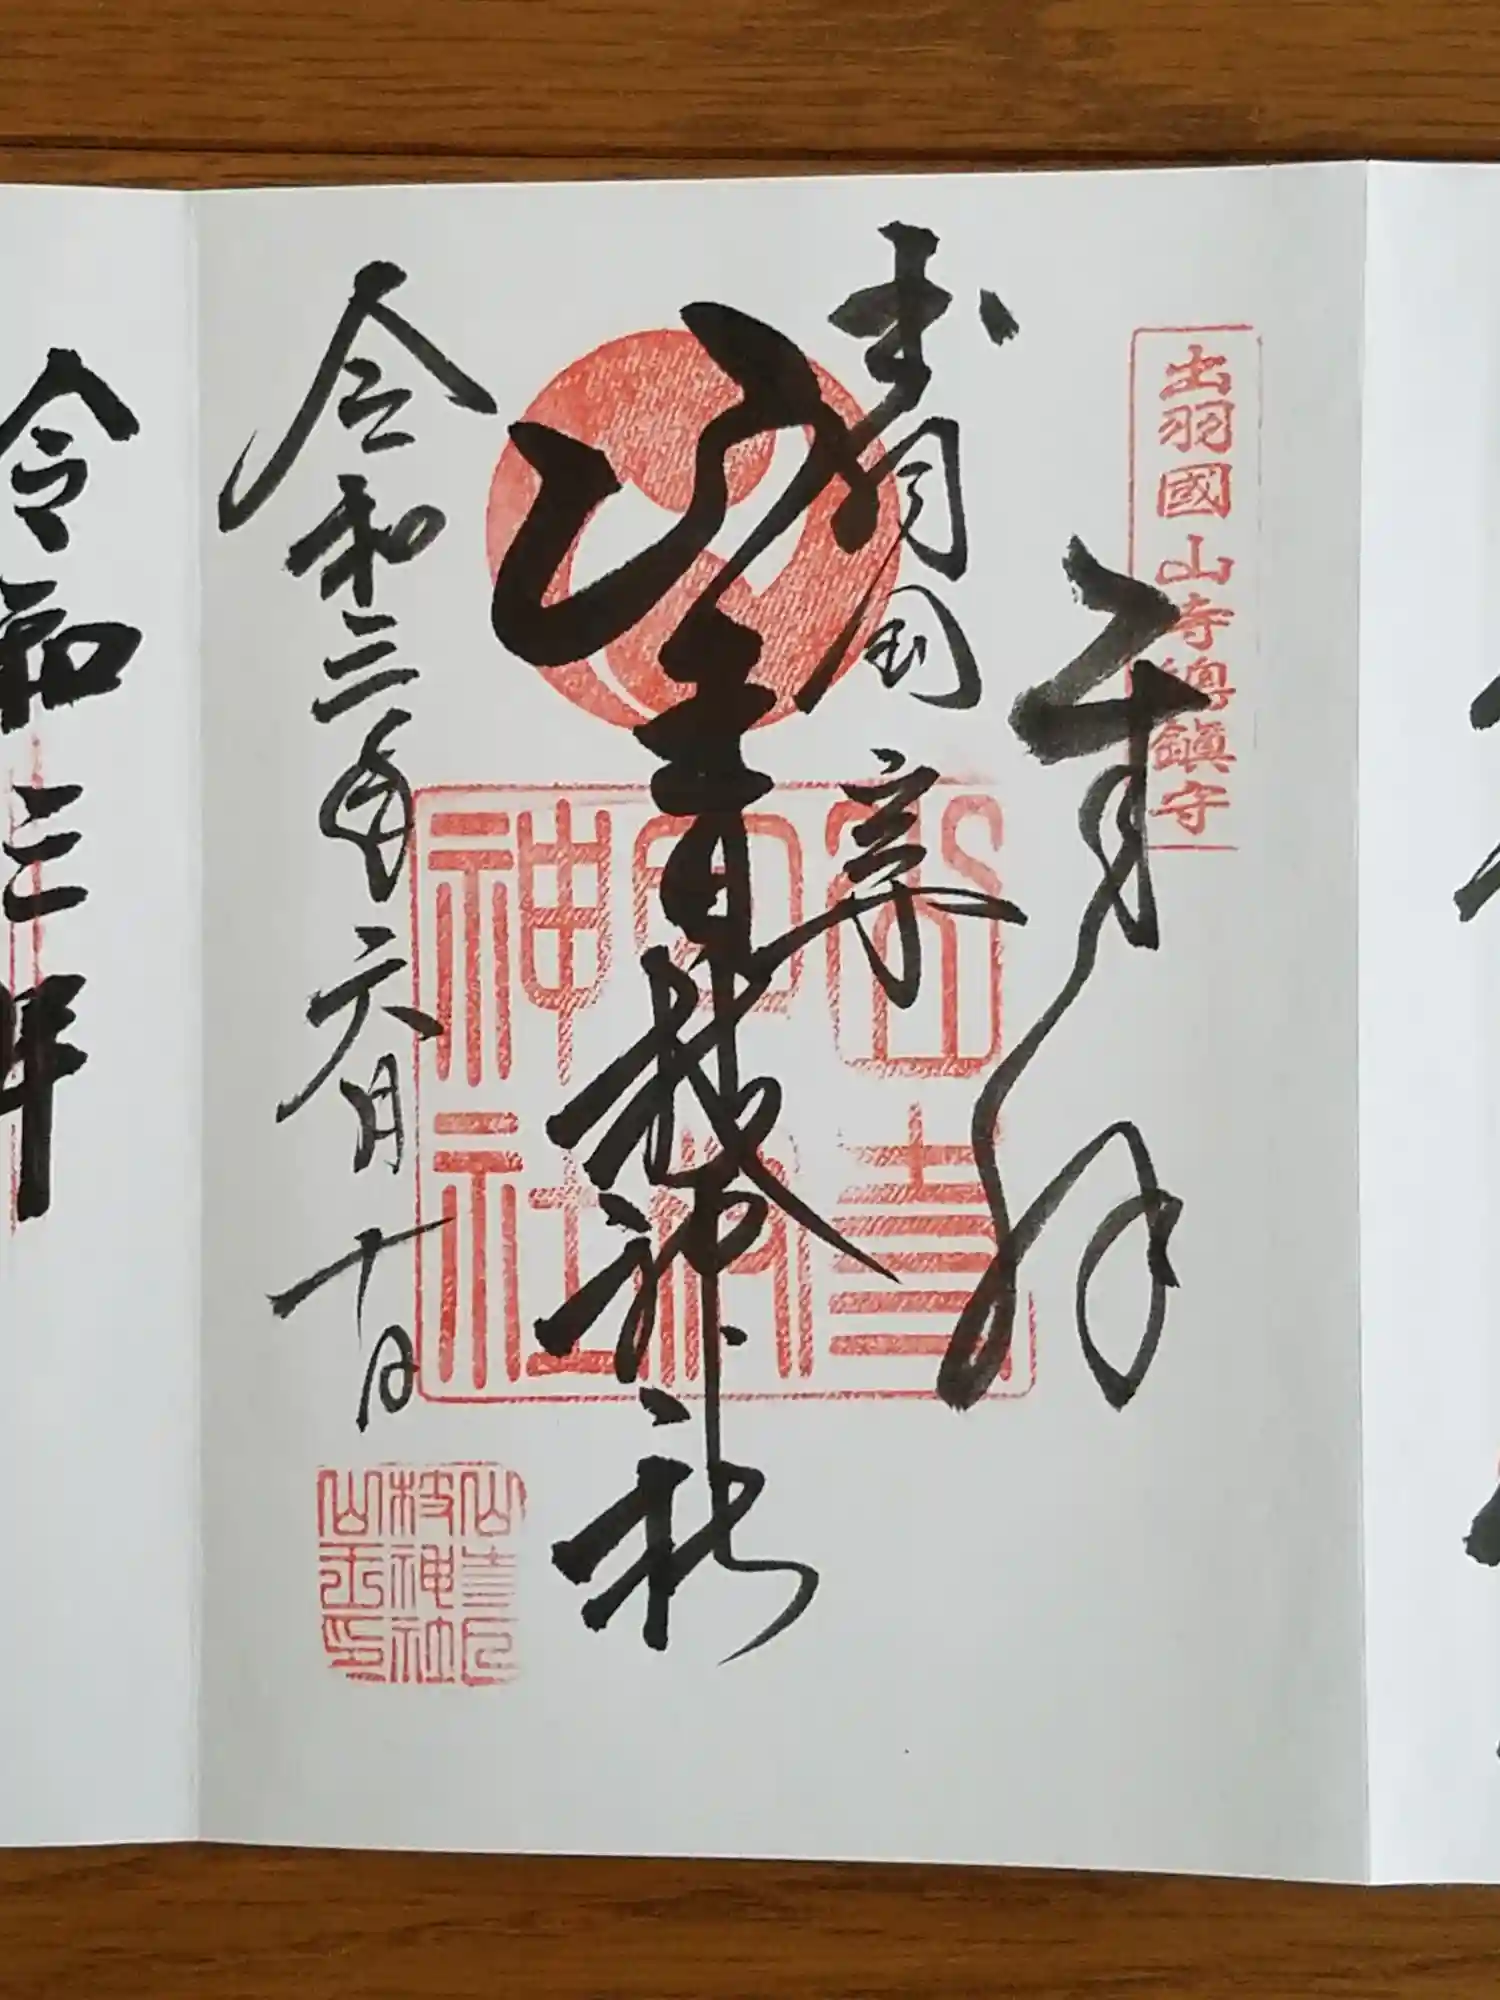 出羽國山寺總鎭守
奉拝
山寺日枝神社
令和三年六月十日
山寺
日枝
神社
山寺日
枝神社
山王印
令和三年